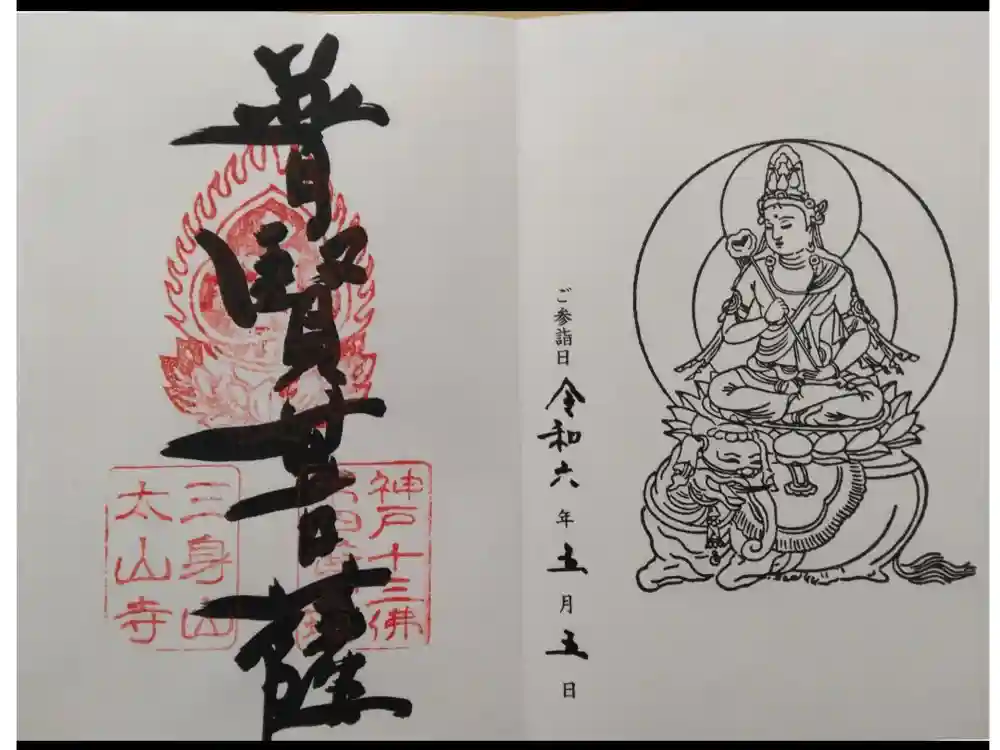 ご参詣日 令和六年五月五日
普賢菩薩
神戸十三佛
三身山
太山寺